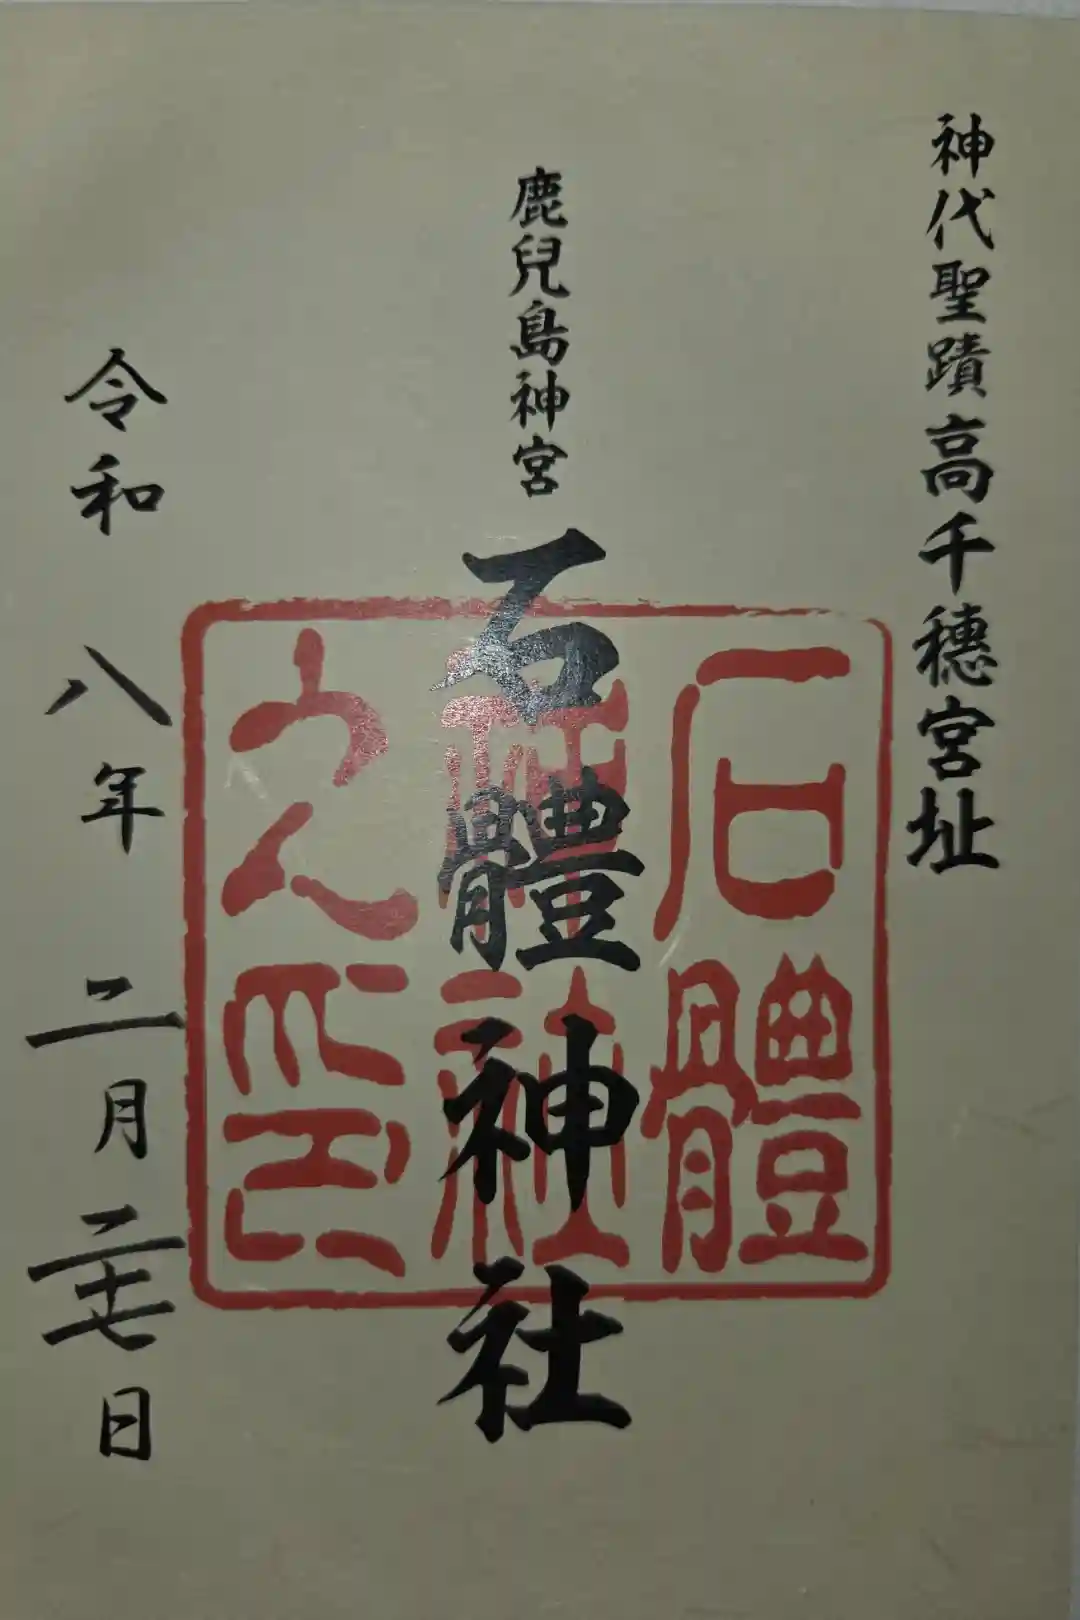 神代聖蹟高千穗宮址
鹿兒島神宮
石體神社
石體
神社
之印
令和八年二月二十七日